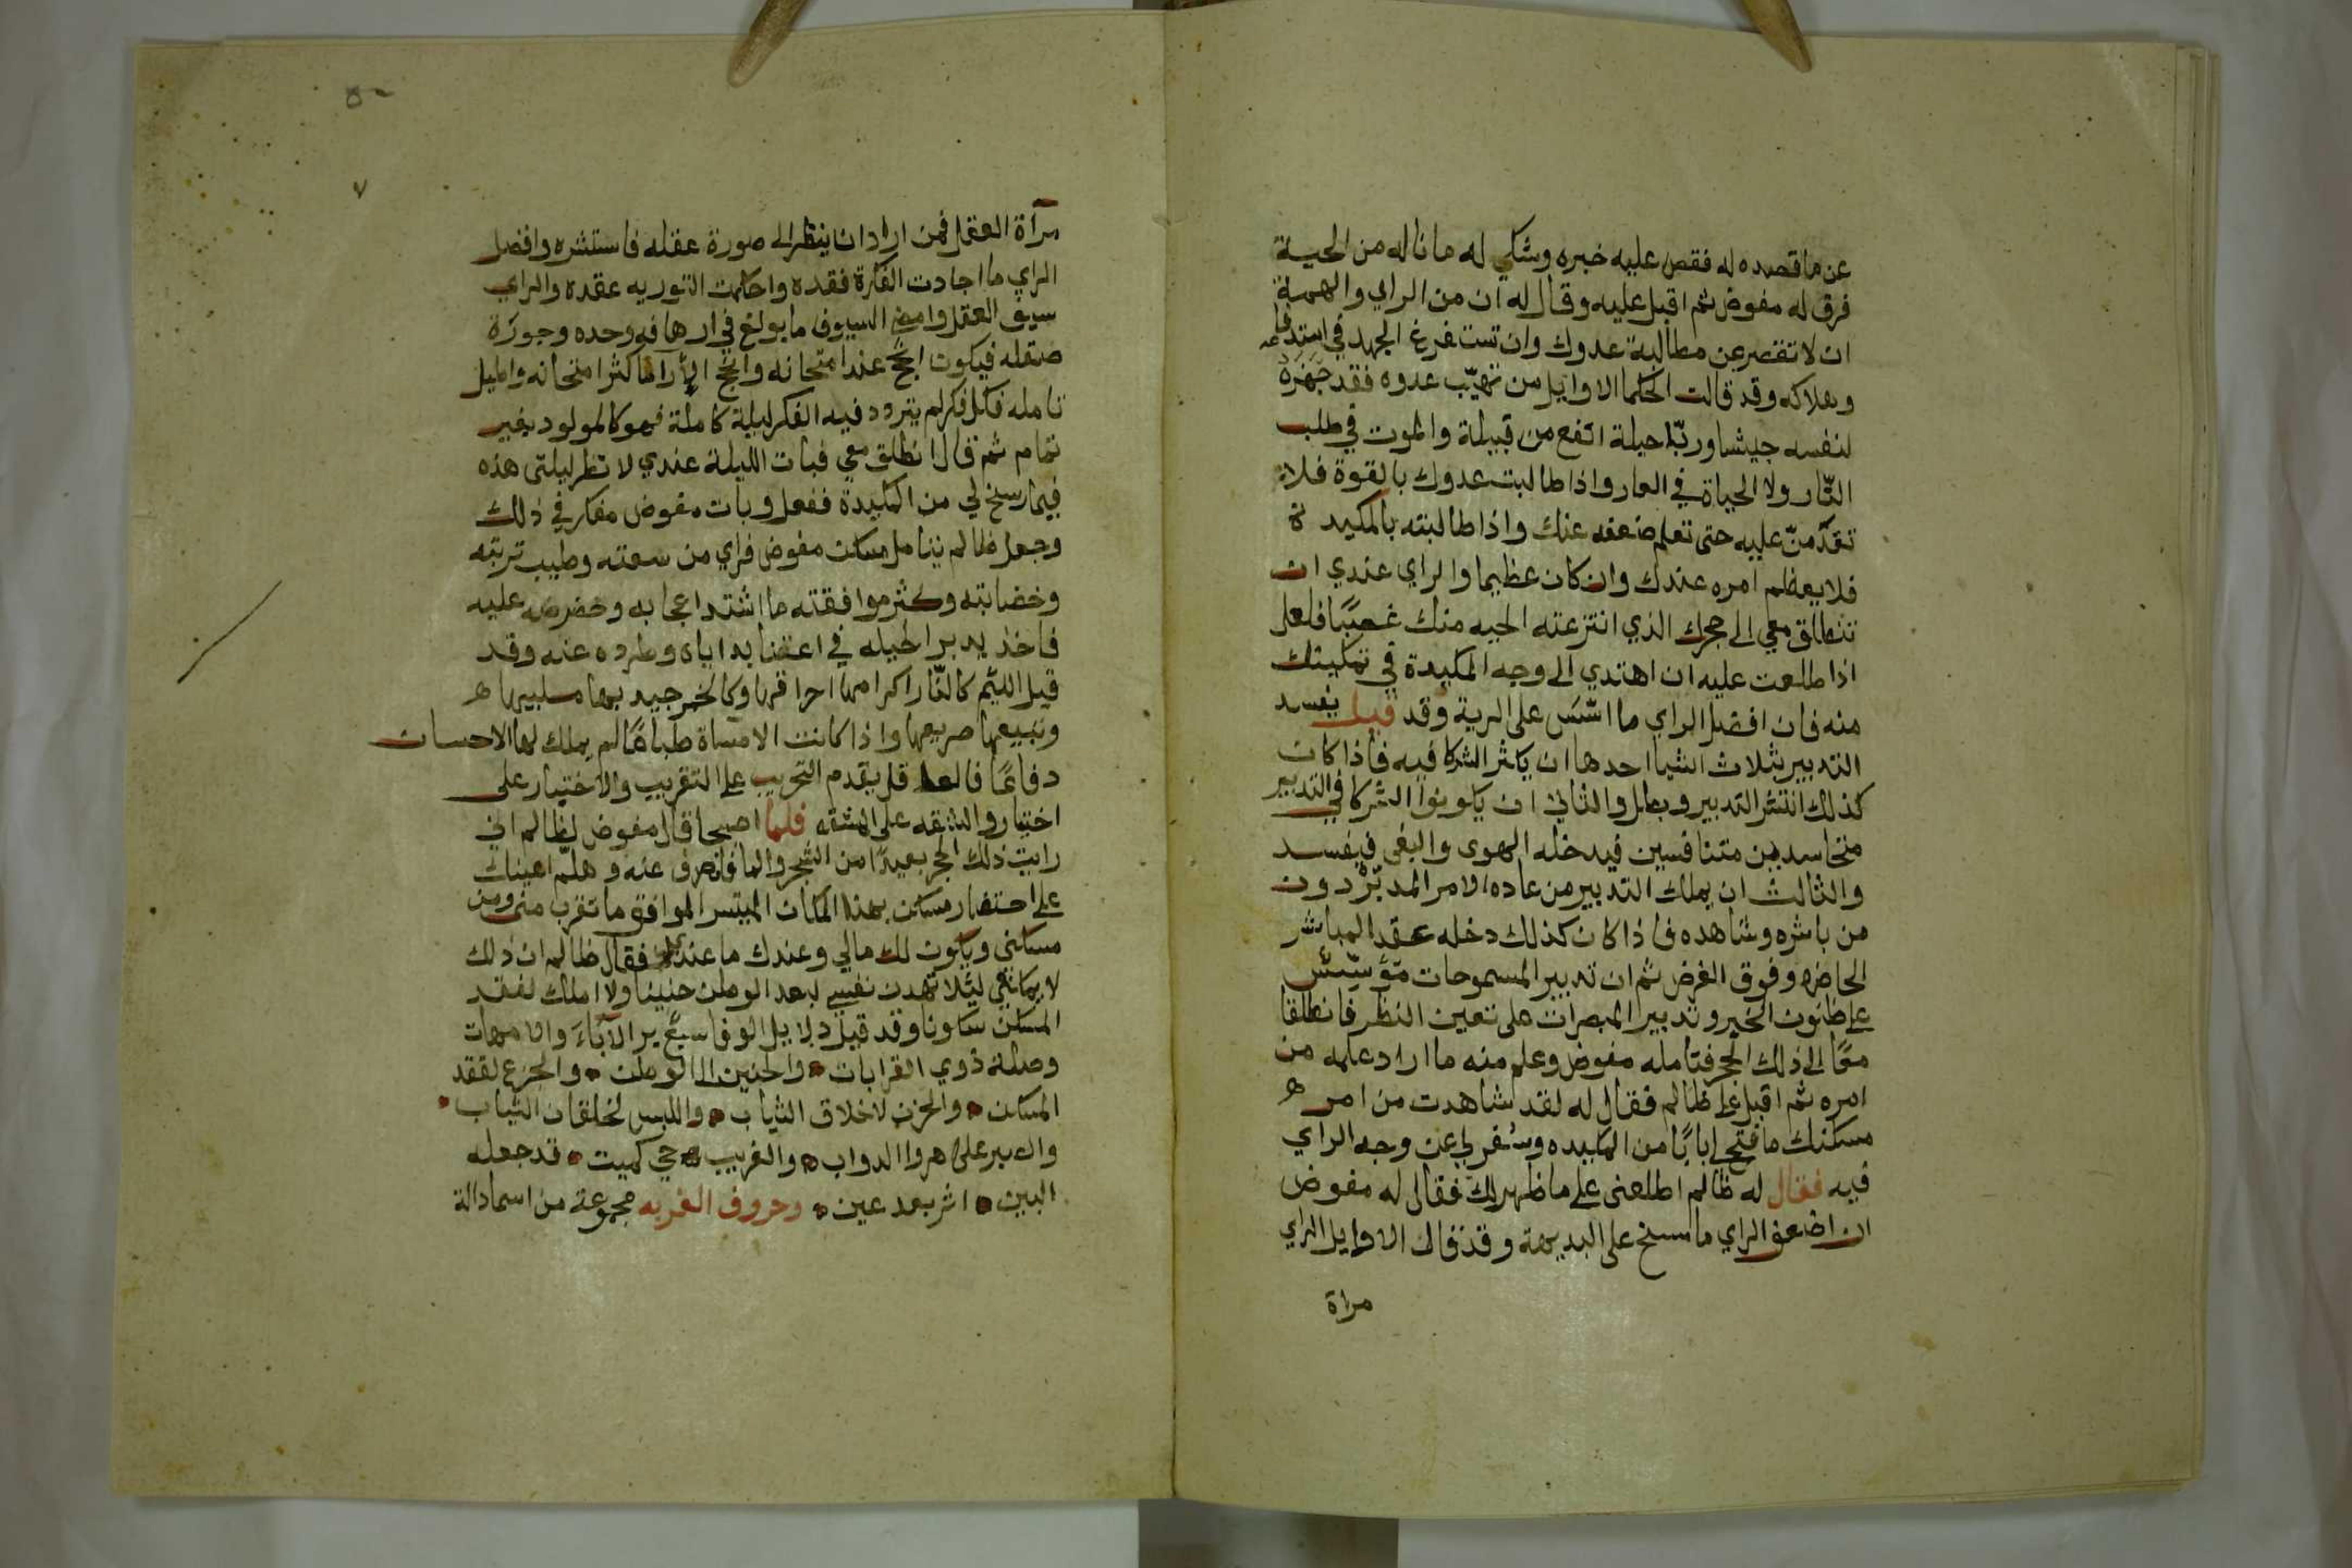 عن ما قصده له فقص عليه خبره وشكي له ما ناله من الحية
فرق له مفوض ثم اقبل عليه وقال له ان من الراي والهمة
ان لا تقصر عن مطالبة عدوك وان تستفرغ الجهد في استدفاعه
وهلاكه وقد قالت الحكما الاوايل من تهيّب عدوه فقد جهزة
لنفسه جيشا وربّ حيلة انفع من قبيلة والموت في طلب
الثّار ولا الحياة في العار واذا طالبت عدوك بالقوة فلا
تقدّمنّ عليه حتى تعلم ضعفه عنك واذا طالبته بالمكيدة
فلا يعظم امره عندك وان كان عظيما والراي عندي ان
تنطلق معي الى جحرك الذي انتزعته الحيه منك غصبًا فلعلي
اذا طلعت عليه ان اهتدي الى وجه المكيدة في تمكينك
منه فان افضل الراي ما اسّس على الرية وقد قيل يفسد
التدبير بثلاث اشيا احدها ان يكثر الشركا فيه فاذا كان
كذلك انتشر التدبير وبطل والثاني ان يكونوا الشركا في التدبير
متحاسدين متنافسين فيدخله الهوى والبغى فيفسد
والثالث ان يملك التدبير من عاده الامر المدبّر دون
من باشره وشاهده فاذا كان كذلك دخله عقد المباشر
الحاضر وفوق الغرض ثم ان تدبير المسموحات مؤسّس
على ظنون الخير وتدبير المبصرات على تعين النظر فانطلقا
معًا الى ذلك الجحر فتامله مفوض وعلم منه ما اراد علمه من
امره ثم اقبل على ظالم فقال له لقد شاهدت من امر
مسكنك ما فتح لي بابًا من المكيده وسفر لي عن وجه الراي
فيه فقال له ظالم اطلعنى على ما ظهر لك فقال له مفوض
ان اضعف الراي ما سنح على البديهة وقد قال الاوايل الراي
مراة
٧
مرآة العقل فمن اراد ان ينظر الى صورة عقله فاستشره وافضل
الراي ما اجادت الفكرة فقده واحكمت التوريه عقده والراي
سيف العقل وامض السيوف ما بولغ في ارهافه وحده وجودة
صقله فيكون انجح عند امتحانه وانجح الأراء ما كثر امتحانه واطيل
تامله فكل فكر لم يتردد فيه الفكر ليلة كاملة فهو كالمولود بغير
تمام ثم قال انطلق معي فبات الليلة عندي لا نظر ليلتى هذه
فيما سنح لي من المكيدة ففعل وبات مفوض مفكر في ذلك
وجعل ظالم يتامل مسكن مفوض فراي من سعته وطيب تربته
وخضابته وكثر موافقته ما اشتد اعجابه وحضرص عليه
فاخذ يدبر الحيله في اغتضابه اياه وطرده عنه وقد
قيل اللئم كالنّار اكرامها احراقها وكالخمر جيد بها مسلبيها
وتبيعها صريعها واذا كانت الامساة طباعًا لم يملك لها الاحسان
دفاعًا فالعا قل يقدم التجريب على التقريب والاختيار على
اختيار والثقه على المشقه فلما اصبحا قال مفوض لظالم انى
رايت ذلك الجحر بعيدًا من الشجر والما فانصرف عنه وهلمّ اعينك
على احتفار مسكن بهذا المكان المتيسر الموافق ما تقرب منى ومن
مسكنى ويكون لك مالي وعندك ما عندي فقال ظالم ان ذلك
لا يمكننى ليلا تهدن نفسي لبعد الوطن حنينا ولا املك لفقد
المسكن سكونا وقد قيل دلايل الوفا سبع بر الآباء والامهات
وصلة ذوي القرابات والحنين الى الوطن والجزع لفقد
المسكن والحزن لاخلاق الثياب واللبس لخلقان الثياب
والصبر على هروا الدواب والغريب حي كميت قد جعله
البين اثر بعد عين وحروف الغربه مجموعة من اسما دالة